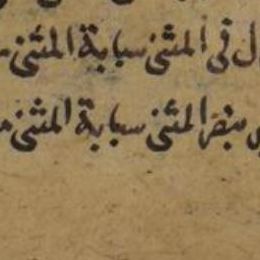 في المثنى سبابة المثنى
بنصر المثنى سبابة المثنى